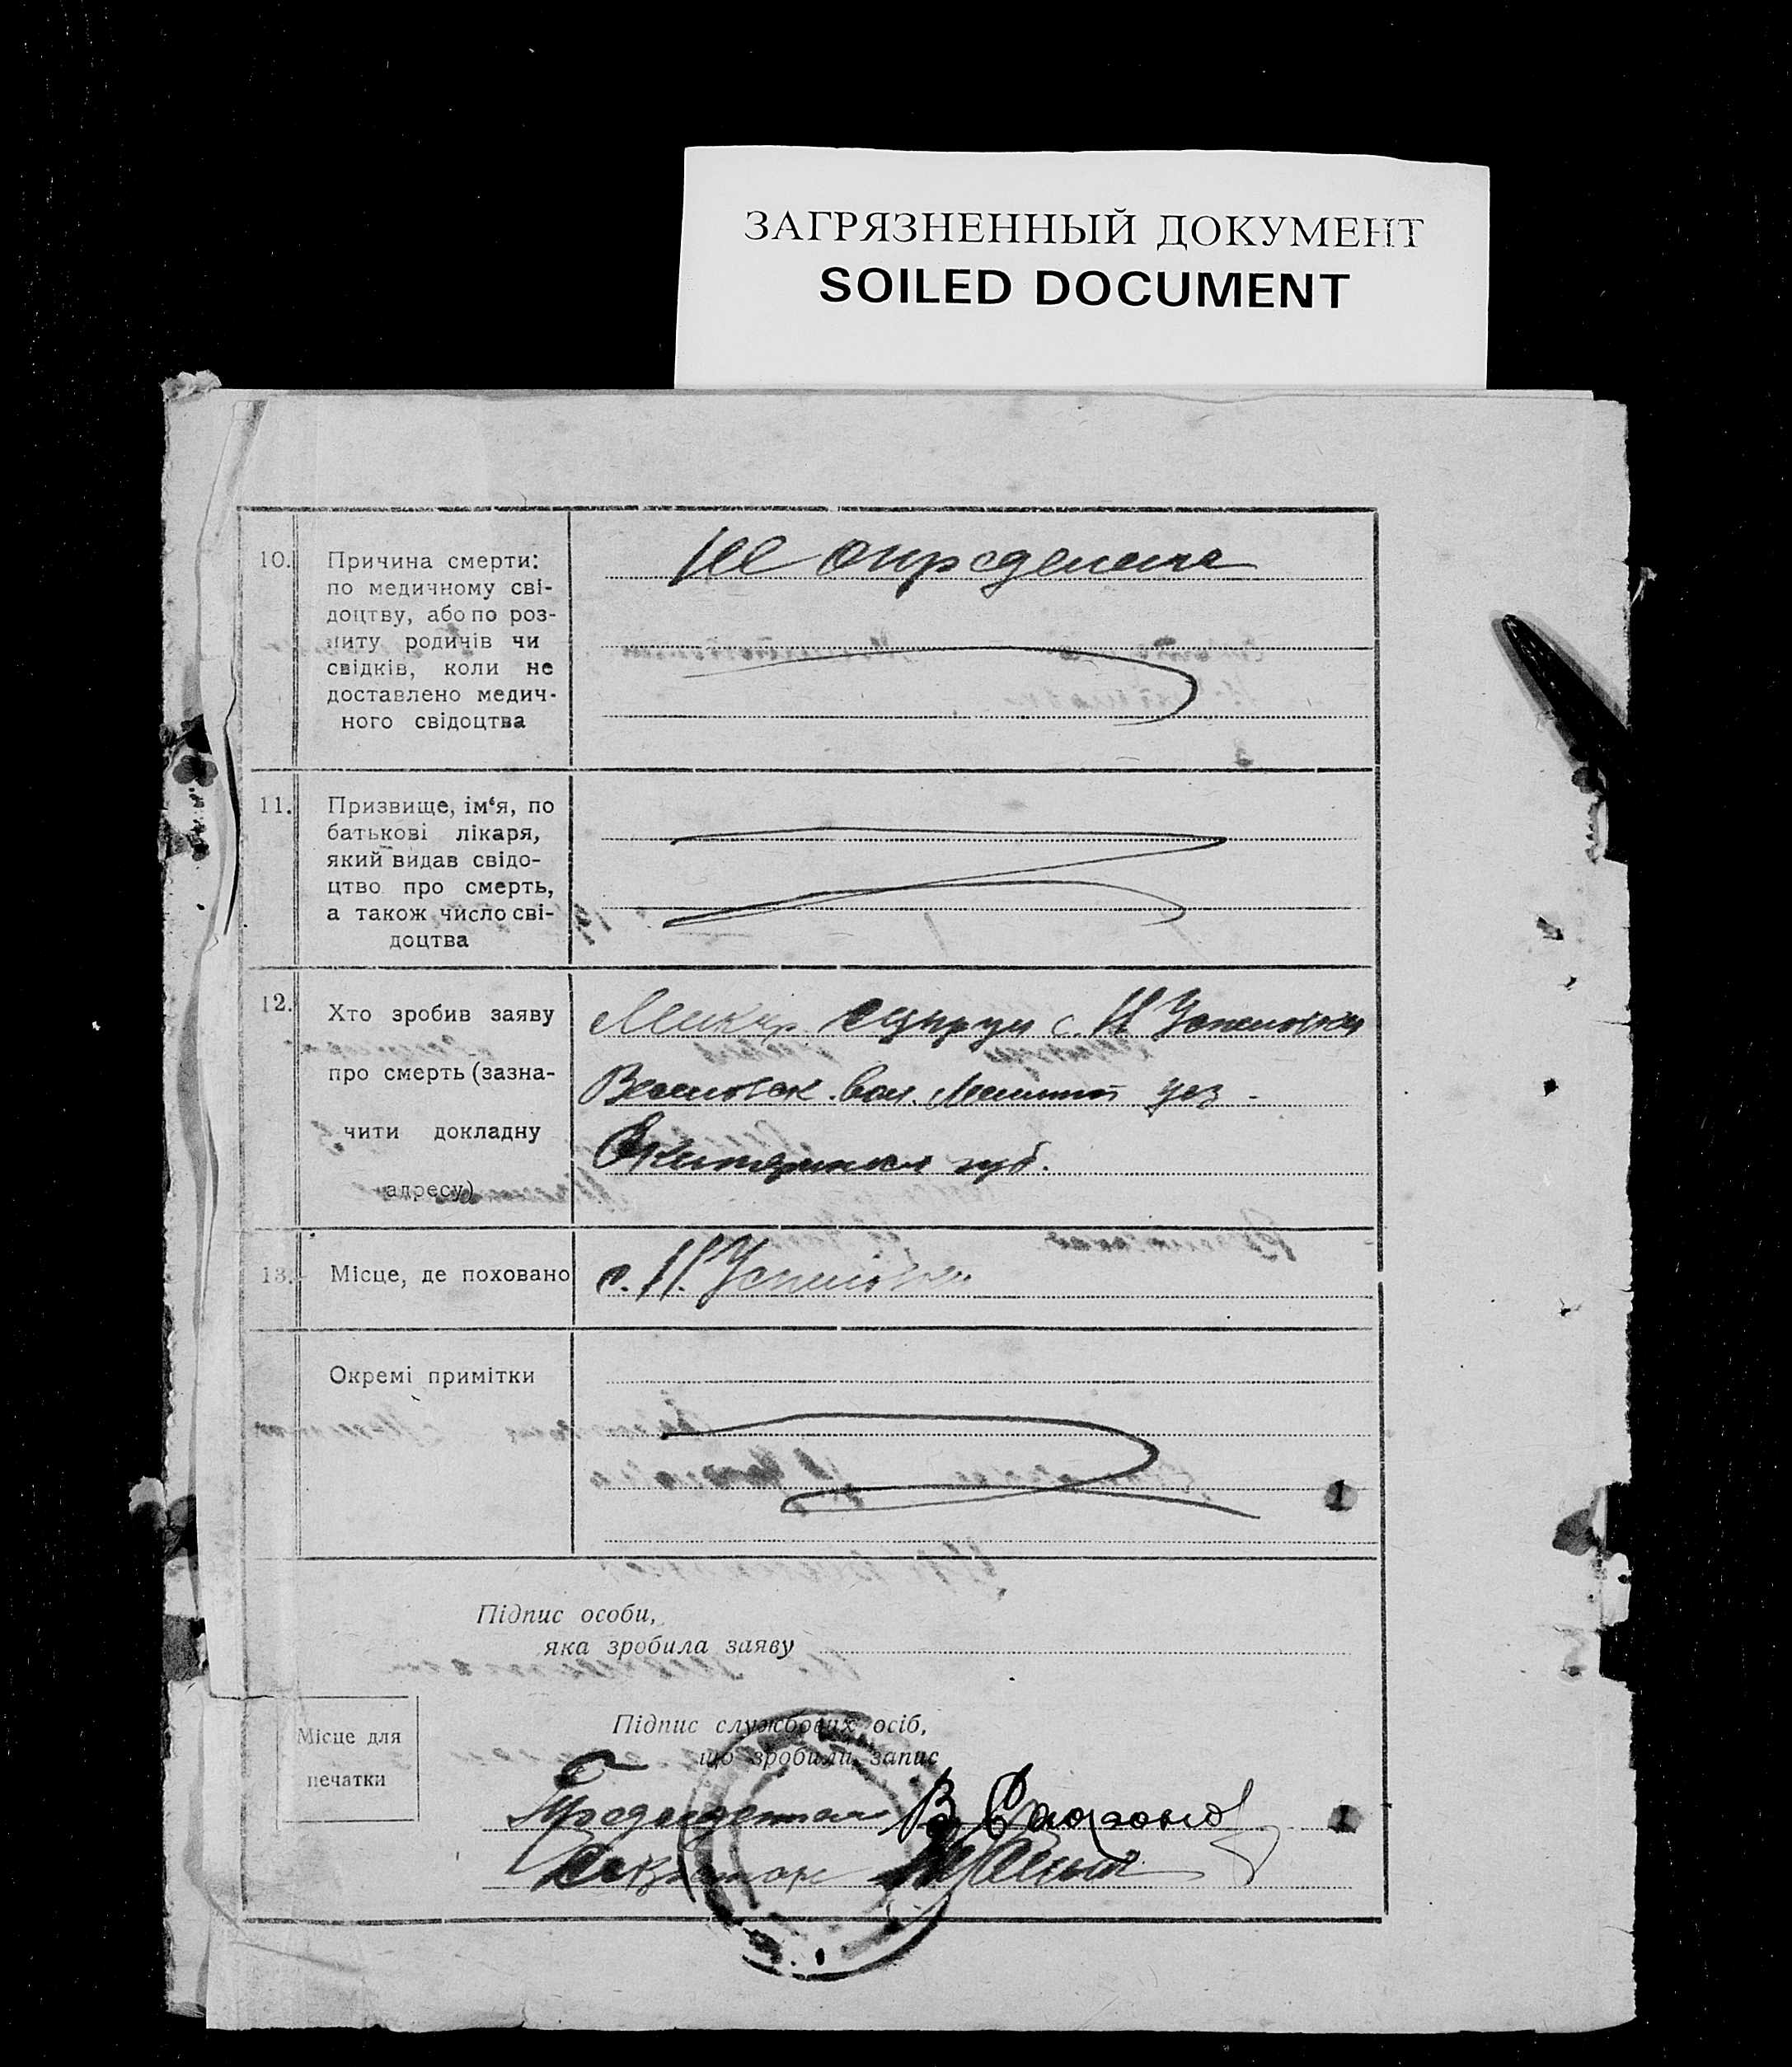 ЗАГРЯЗНЕННЫЙ ДОКУМЕНТ
SOILED DOCUMENT
10. Причина смерти:
по медичному сві-
доцтву, або по роз-
питу родичів чи
свідків, коли не
доставлено медич-
ного свідоцтва
Не определена
11. Призвище, ім‘я, по
батькові лікаря,
який видав свідо-
цтво про смерть,
а також число сві-
доцтва
12. Хто зробив заяву
про смерть (зазна-
чити докладну
адресу)
с. Н Успеновки
вол. уез
губ.
13. Місце, де поховано
с. Н. Успеновки
Окремі примітки
Підпис особи,
яка зробила заяву
Місце для
печатки
Підпис службових осіб,
що зробили запис
Председатель В
Секретарь